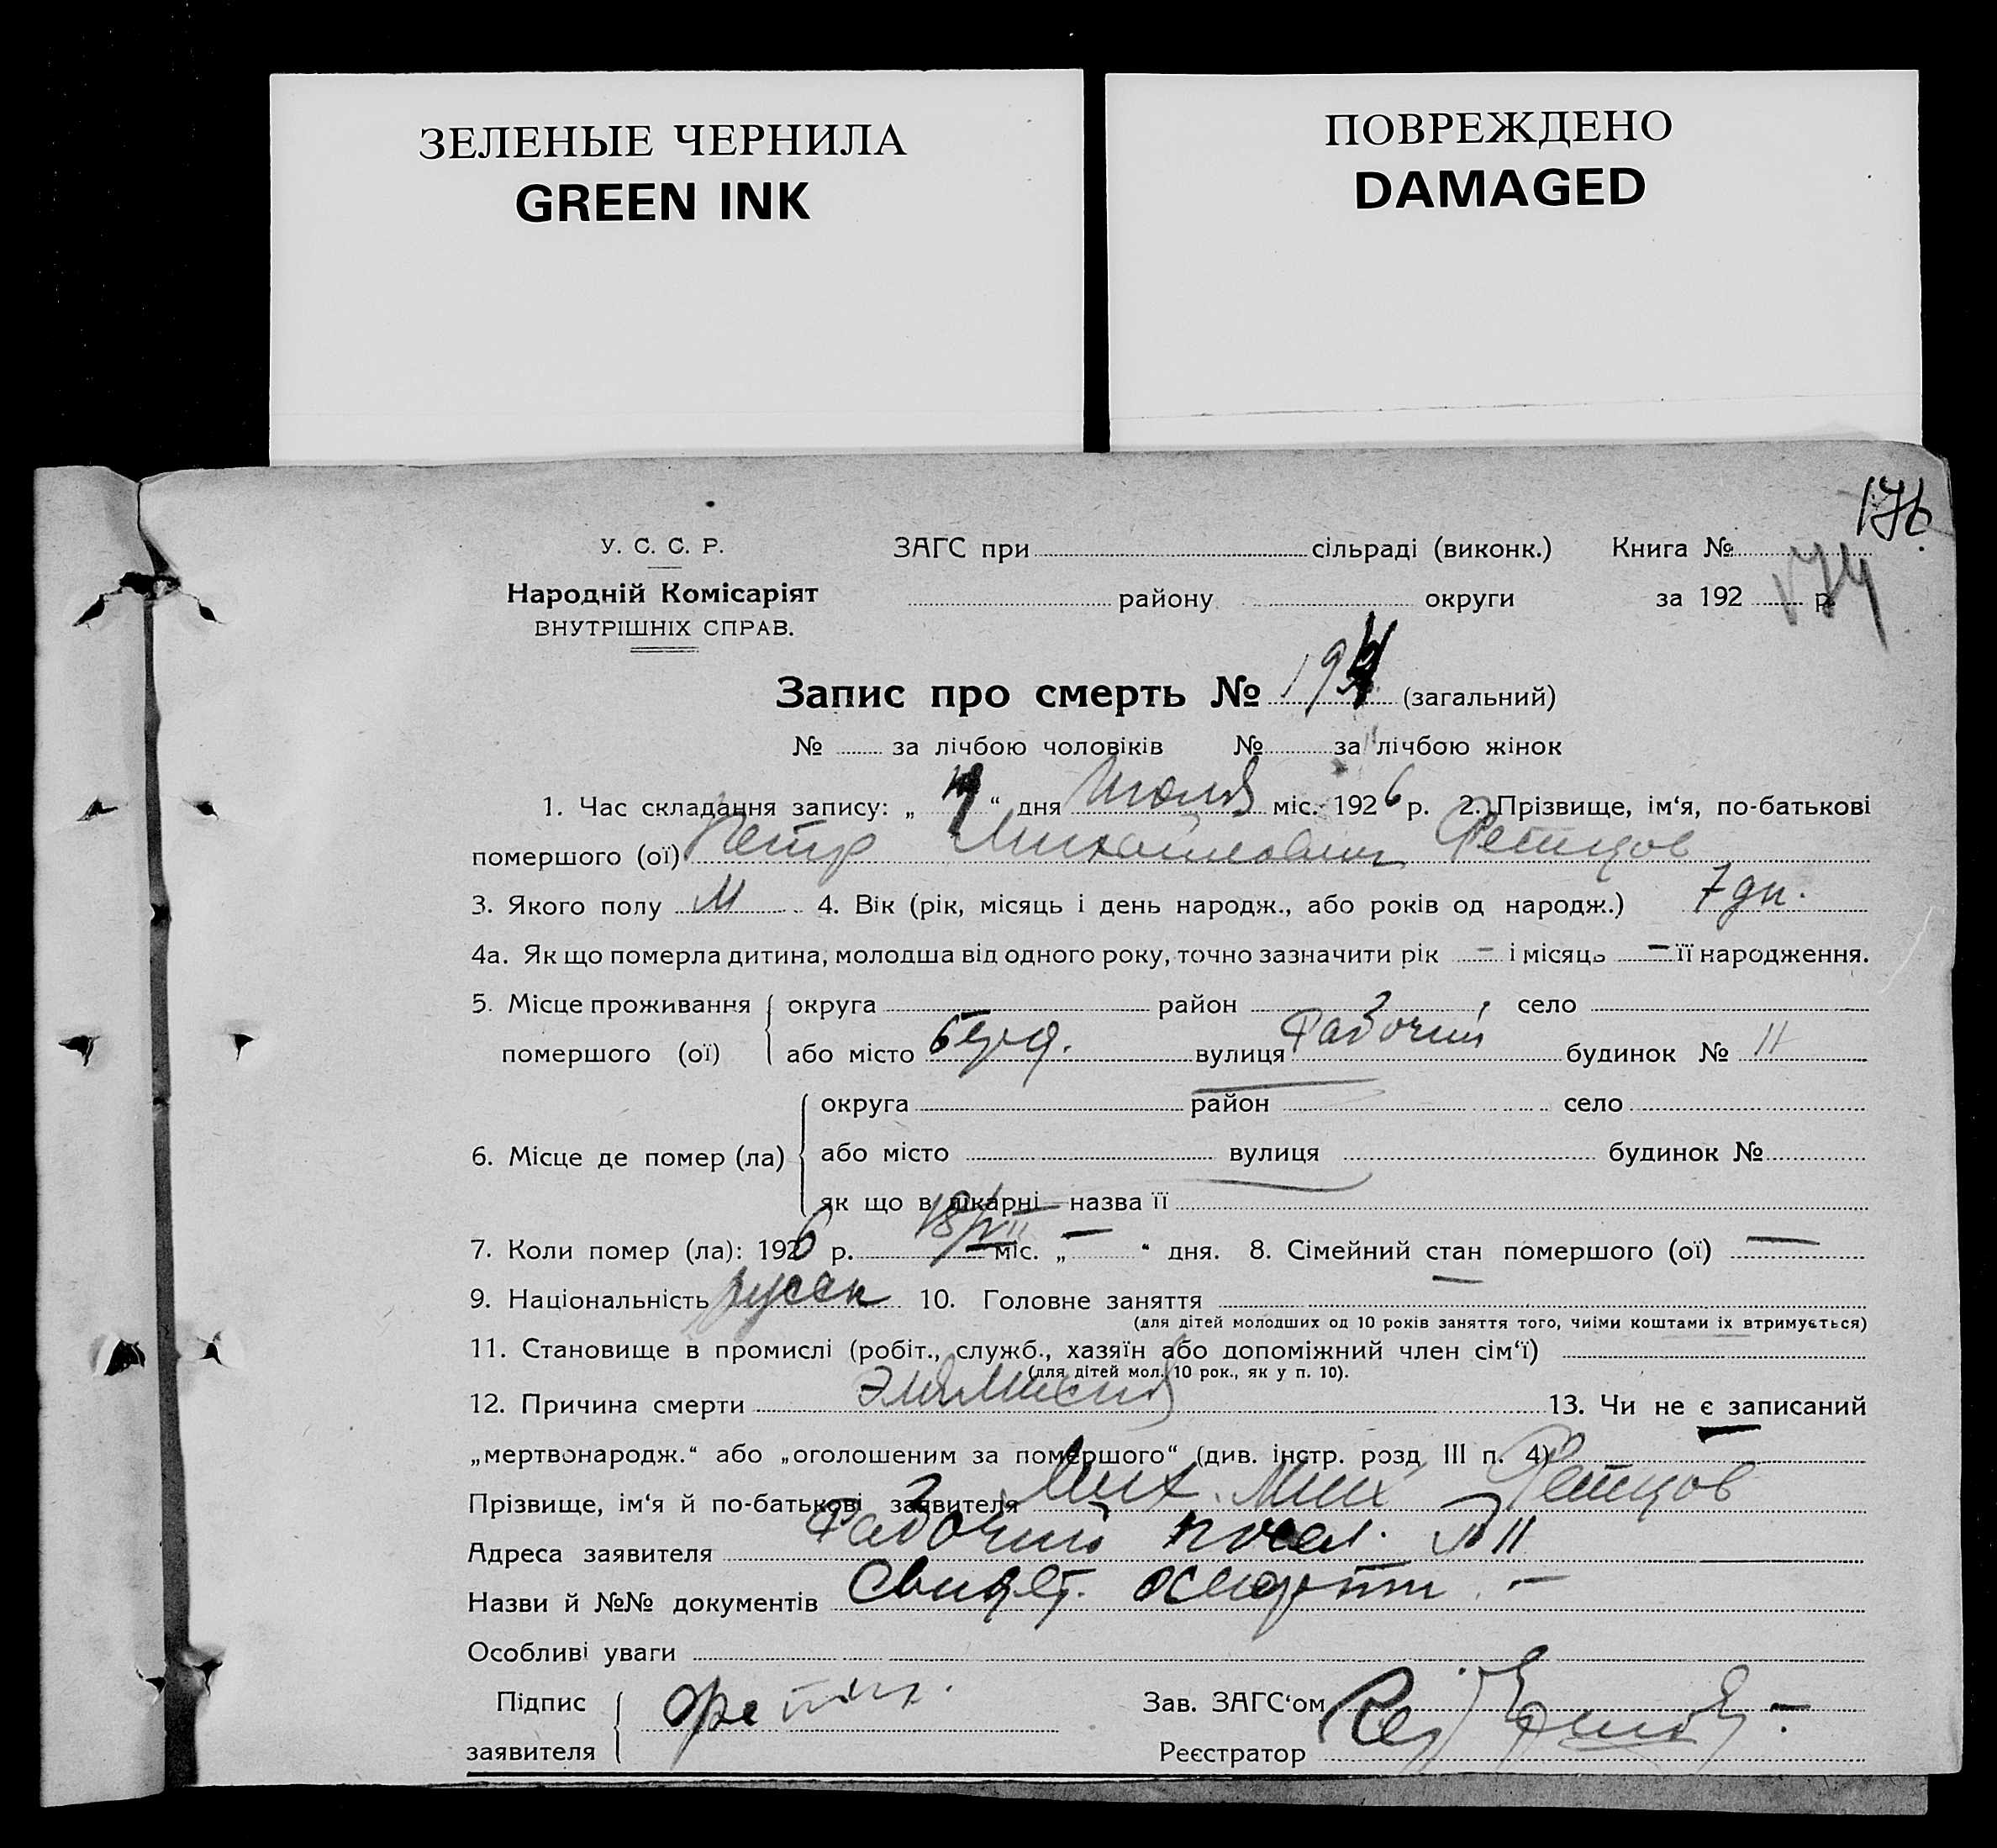 ЗЕЛЕНЫЕ ЧЕРНИЛА
GREEN INK
ПОВРЕЖДЕНО
DAMAGED
176
174
У. С. С. Р.
Народній Комісаріят
ВНУТРІШНІХ СПРАВ.
ЗАГС при сільраді (виконк.) Книга №
району округи за 192 р.
Запис про смерть № 194 (загальний)
№ за лічбою чоловіків № за лічбою жінок
1. Час складання запису: „ “ дня Июля міс. 1926 р. 2. Прізвище, ім‘я, по-батькові
помершого (ої) Петр Михайлович Фетицов
3. Якого полу М 4. Вік (рік, місяць і день народж., або років од народж.) 7 дн.
4а. Як що померла дитина, молодша від одного року, точно зазначити рік – і місяць – її народження.
5. Місце проживання помершого (ої) округа район село
або місто вулиця 2 Рабочий будинок № 11
6. Місце де помер (ла) округа район село
або місто вулиця будинок №
як що в лікарні—назва її
7. Коли помер (ла): 1926 р. 18/VII міс. „ — “ дня. 8. Сімейний стан помершого (ої) —
9. Національність русск 10. Головне заняття —
(для дітей молодших од 10 років заняття того, чиїми коштами їх втримується)
11. Становище в промислі (робіт., служб., хазяїн або допоміжний член сім‘ї)
(для дітей мол. 10 рок., як у п. 10).
12. Причина смерти Эклямпсия 13. Чи не є записаний
„мертвонародж.“ або „оголошеним за помершого“ (див. інстр. розд III п. 4) —
Прізвище, ім‘я й по-батькові заявителя Мих. Мих Фетицов
Адреса заявителя 2 Рабочий посел. № 11
Назви й №№ документів Свидет. о смерти. –
Особливі уваги
Підпис заявителя
Зав. ЗАГС‘ом
Реєстратор